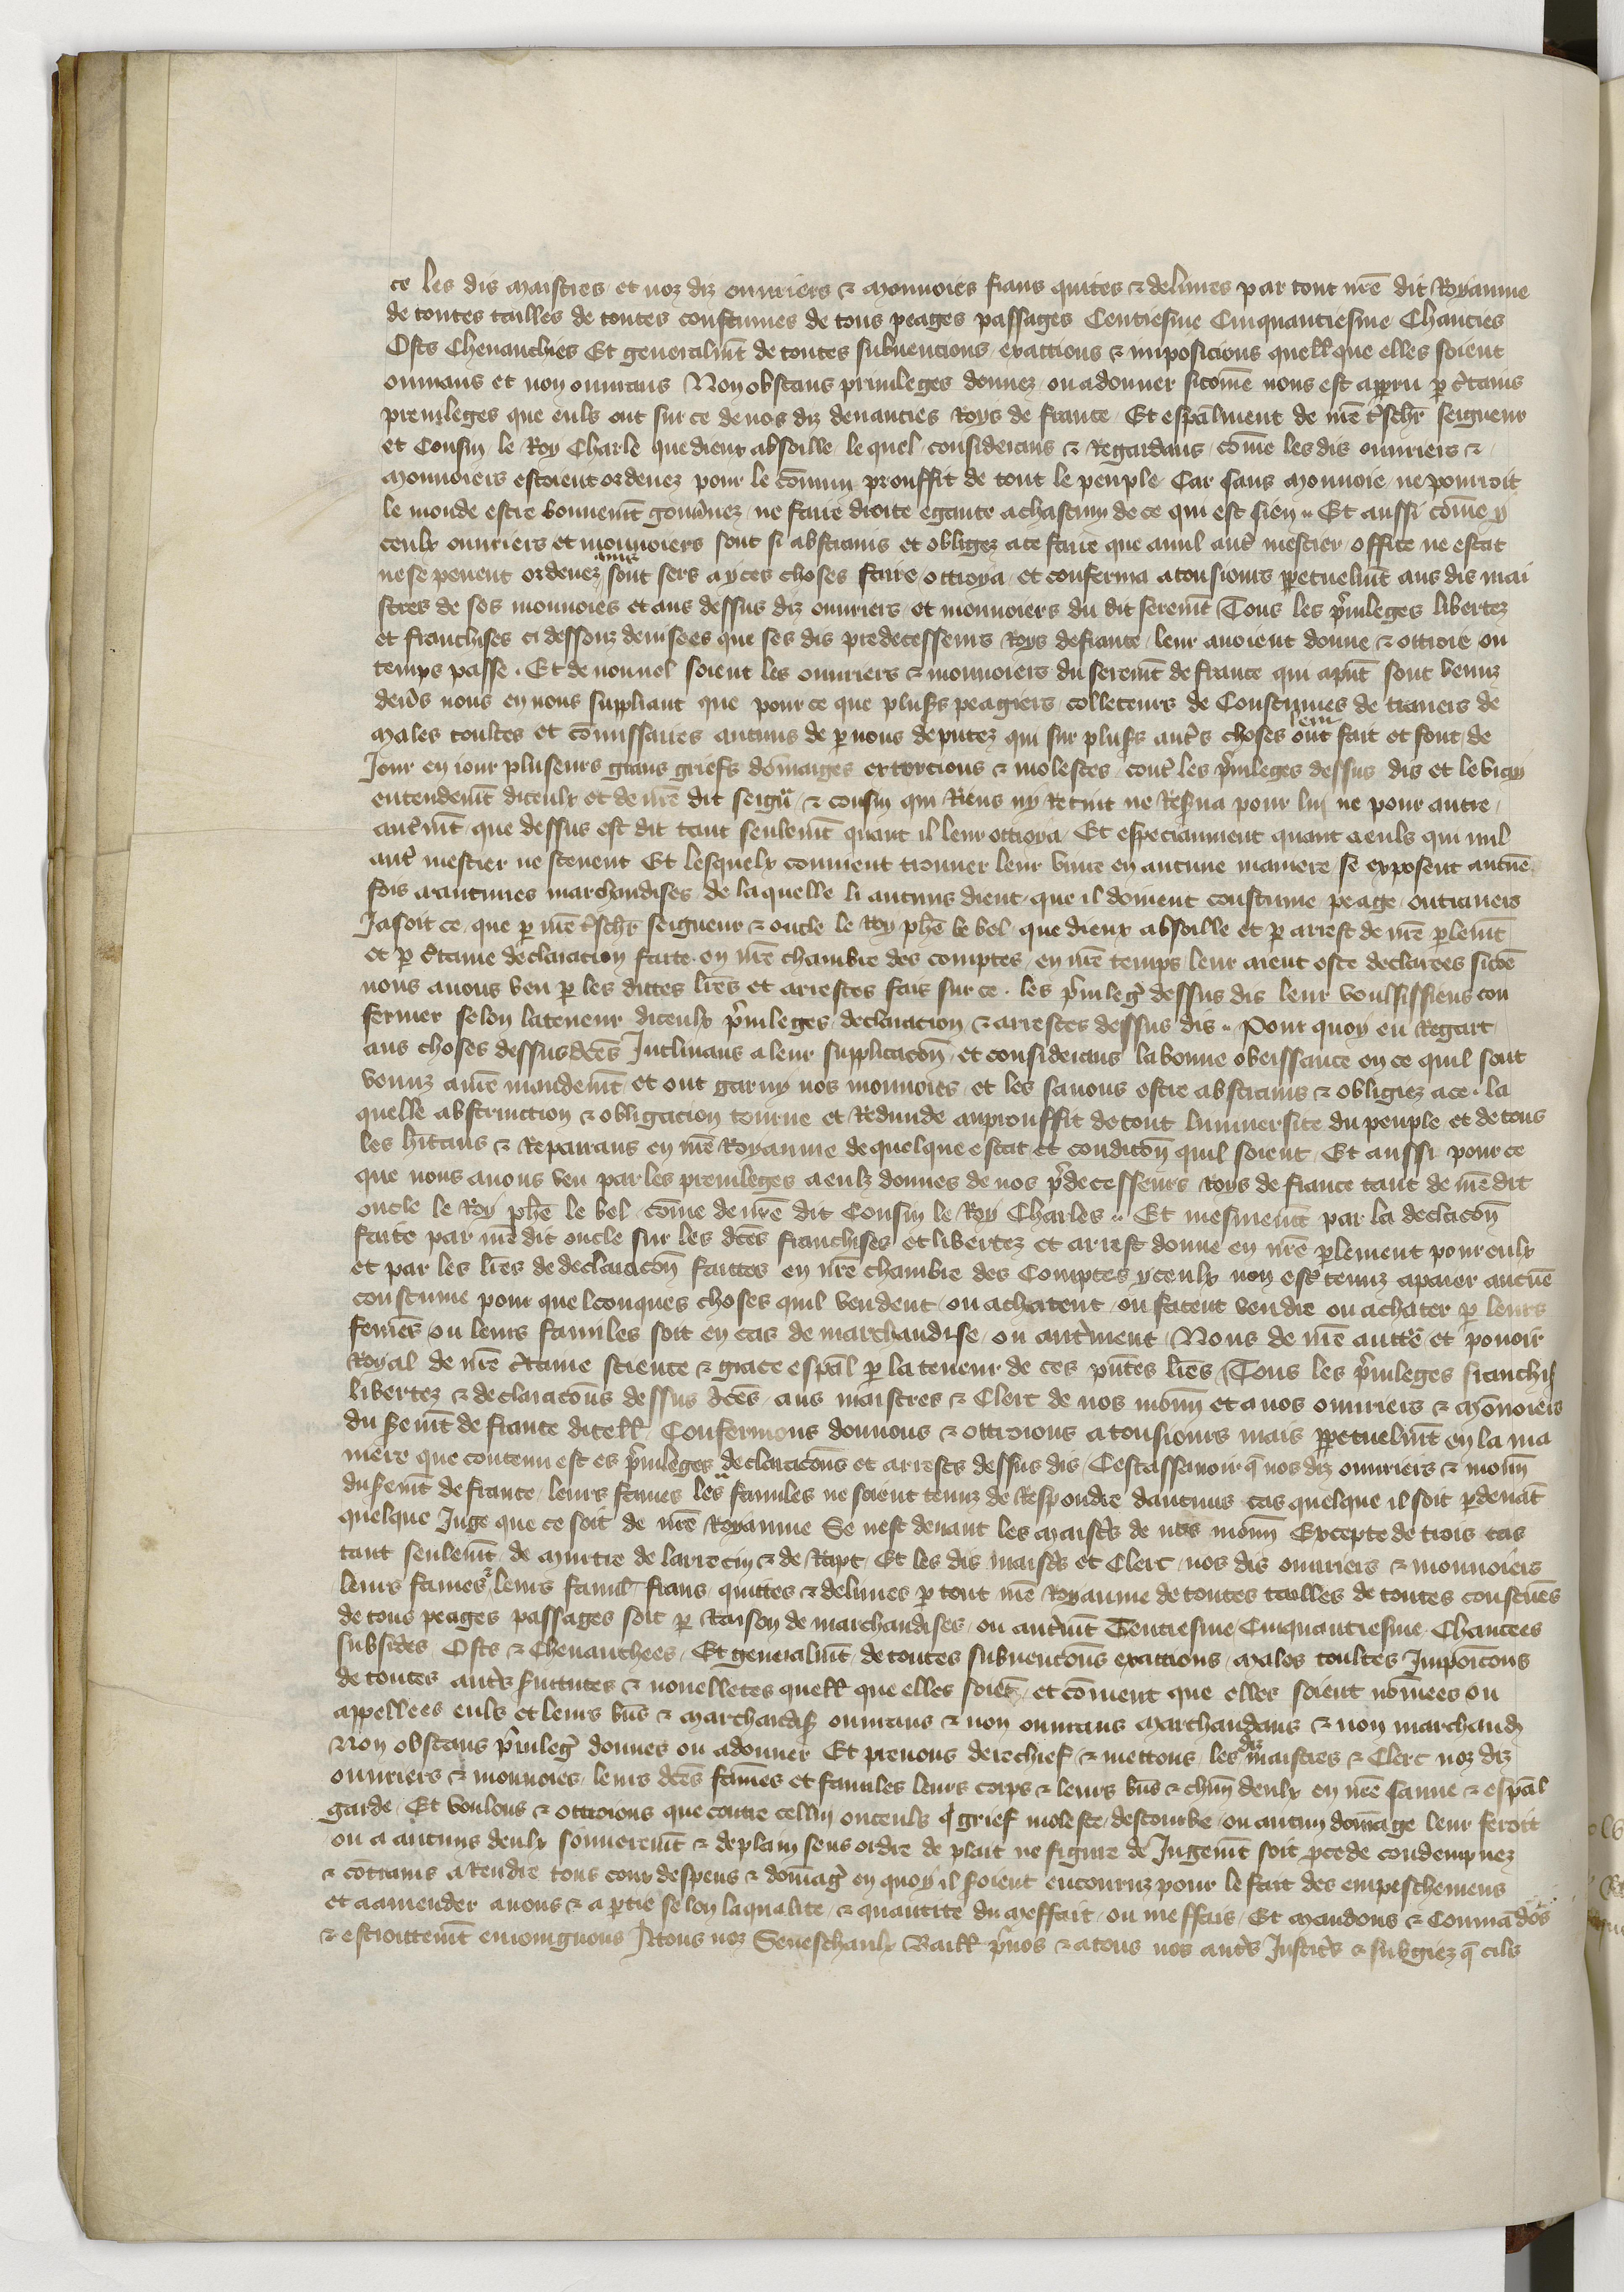 ce les dis maistres et noz diz ouuriers & monnoies frans quites & deliures par tout nr̄e dit Royaume
de toutes tailles de toutes coustumes de tous peages passages Centiesme Cinquantiesme Chauciees
Osts Cheuauchies Et generalmt̄ de toutes subuencions exactions & imposicions quell̄ que elles soient
ouurans et non ouurans Non obstans priuileges donnez ou a donner si cōme nous est apparu p c̄tains
preuileges que euls ont sur ce de nos diz deuanciers Roys de france Et esp̄alment de nr̄e tschr̄ seigneur
et Cousin le Roy Charle que dieux absoille le quel considerans & Regardans cōme les dis ouuriers &
monnoiers estoient ordenez pour le cōmun prouffit de tout le peuple Car sans monnoie ne pourroit
le monde estre bonnemt̄ gouūnez ne faire droite egaute a chascun de ce qui est sien Et aussi cōme y
ceulx ouuriers et monnoiers sont si abstrains et obligez a ce faire que a nul aut̄ mestier office ne estat
ne se peuent ordenez ains sont sers a yces choses faire ottroya et conferma a tousiours ppetuelmt̄ aus dis mai
stres de ses monnoies et aus dessus diz ouuriers et monnoiers du dit seremt̄ Tous les p̄uileges libertez
et franchises ci dessouz deuisees que ses dis predecesseurs Roys de france leur auoient donne & ottroie ou
temps passe Et de nouuel soient les ouuriers & monnoiers du seremt̄ de france qui a pn̄t sont venuz
deūs nous en nous suppliant que pour ce que plus̄s peagiers collecteurs de Coustumes de trauers de
males toultes et cōmissaires aucuns de p nous deputez qui sur plus̄s aut̄s choses leur ont fait et font de
Jour en iour pluseurs grans griefs dōmaiges extorcions & molestes cont̄ les p̄uileges dessus dis et le vray
entendemt̄ diceulx et de nr̄e dit seign̄ & cousin qui Riens ny Retint ne Res̄ua pour lui ne pour autre
aut̄mt̄ que dessus est dit tant seulemt̄ quant il leur ottroya Et especiaument quant a euls qui nul
aut̄ mestier ne sceuent Et lesquelx conuient trouuer leur viure en aucune maniere se exposent aucūe
fois a aucunes marchandises de laquelle li aucuns dient que il doiuent coustume peage ou trauers
Ja soit ce que p nr̄e tschr̄ seigneur & oncle le Roy phē le bel que dieux absoille et p arrest de nr̄e plemt̄
et p c̄taine declaracion faite en nr̄e chambre des comptes en nr̄e temps leur aient este declarees si cōe
nous auons veu p les dittes lr̄es et arrestes fais sur ce les p̄uileḡ dessus dis leur voulsissiens con
fermer selon la teneur diceulx p̄uileges declaracion & arrestes dessus dis Pour quoy eu Regart
aus choses dessus dc̄es Inclinans a leur supplicacōn et considerans la bonne obeissance en ce quil sont
venuz a nr̄e mandemt̄ et ont garny nos monnoies et les sauons estre abstrains & obligiez a ce la
quelle abstrinction & obligacion tourne et Redunde au prouffit de tout luniuersite du peuple et de tous
les hītans & Repairans en nr̄e Royaume de quelque estat et condicōn quil soient Et aussi pour ce
que nous auons veu par les preuileges a eulz donnes de nos p̄decesseurs Roys de france tant de nr̄e dit
oncle le Roy phē le bel cōme de nr̄e dit Cousin le Roy Charles Et mesmemt̄ par la declacōn
faite par nr̄e dit oncle sur les dc̄es franchises et libertez et arrest donne en nr̄e plement pour eulx
et par les lr̄es de declaracōn faittes en nr̄e chambre des Comptes yceulx non est̄ tenuz a paier aucūe
coustume pour quelconques choses quil vendent ou achatent ou facent vendre ou achater p leurs
femēs ou leurs familes soit en cas de marchandise ou aut̄ment Nous de nr̄e autt̄e et pouoir
Royal de nr̄e c̄taine science & grace esp̄al p la teneur de ces pn̄tes lr̄es Tous les p̄uileges franchis̄
libertez & declaracōns dessus dc̄es aus maistres & Clerc de nos monn̄ et a nos ouuriers & mōnoiers
du s̄emt̄ de france dicell̄ Confermons donnons & ottroions a tousiours mais ppetuelmt̄ en la ma
niere que contenu est es p̄uileges declaracōns et arrests dessus dis Cest assauoir q̄ nos diz ouuriers & monn̄
du s̄emt̄ de france leurs fames les familes ne soient tenuz de Respondre daucuns cas quelque il soit p deuāt
quelque Juge que ce soit de nr̄e Royaume Se nest deuant les maist̄s de nos monn̄ Excepte de trois cas
tant seulemt̄ de murtre de larrecin & de Rapt Et les dis maist̄s et Clerc nos dis ouuriers & monnoiers
leurs fames & leurs famil̄ frans quittes & deliures p tout nr̄e Royaume de toutes tailles de toutes coustūes
de tous peages passages soit p Raison de marchandises ou aut̄mt̄ Centiesme Cinquantiesme Chaucees
subsides Osts & Cheuauchees Et generalmt̄ de toutes subuencōns exactions males toultes Imposicōns
de toutes aut̄s s̄uitutes & nouelletes quell̄ que elles soiēt et cōment que elles soient nōmees ou
appellees euls et leurs bn̄s & marchandis̄ ouurans & non ouurans marchandans & non marchand̄
Non obstans p̄uileḡ donnes ou a donner Et prenons derechief & mettons les diz maistres & Clerc noz diz
ouuriers & monnoies leurs dc̄es fam̄es et familes leurs corps & leurs bn̄s & chūn deulx en nr̄e sauue & esp̄al
garde Et voulons & ottroions que contre cellui ou ceulx q̄ grief moleste destourbe ou aucun domāge leur feroit
ou a aucuns deulx sōmeremt̄ & de plain sens ordre de plait ne figure de Jugemt̄ soit p̄cede condempnez
& cōtrains a Rendre tous couz despens & domaḡ en quoy il soient encouruz pour le fait des empeschemens
et a amender a nous & a ptie selon la qualite & quantite du meffait ou meffais Et mandons & Conmādōs
& estroittemt̄ enioingnons A tous noz Seneschaulx Baill̄ p̄uos & a tous nos aut̄s Justic̄s & subgiez q̄ cils